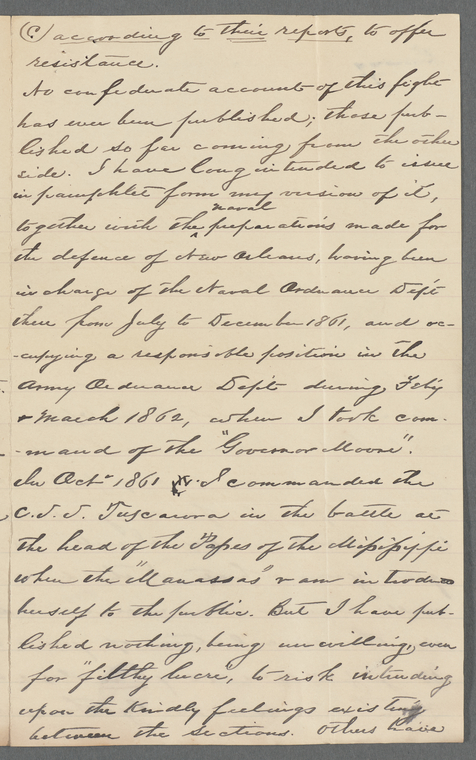 (C.) according to their reports, to offer
resistance.
No confederate account of this fight
has ever been published; those pub-
lished so far coming from the other
side. I have long intended to issue
in pamphlet form my version of it,
together with the ^naval preparations made for
the defence of New Orleans, having been
in charge of the Naval Ordnance Dept
there from July to December 1861, and oc-
-cupying a responsible position in the
Army Ordnance Dept during Feby
& March 1862, when I took com-
-mand of the "Governor Moore".
In Octr 1861 I commanded the
C.S.S. Tuscarora in the battle at
the head of the Passes of the Mississippi
when the "Manassas" ram introduced
herself to the public. But I have pub-
lished nothing, being unwilling, even
for "filthy lucre", to risk intruding
upon the Kindly feelings existing
between the sections. Others have